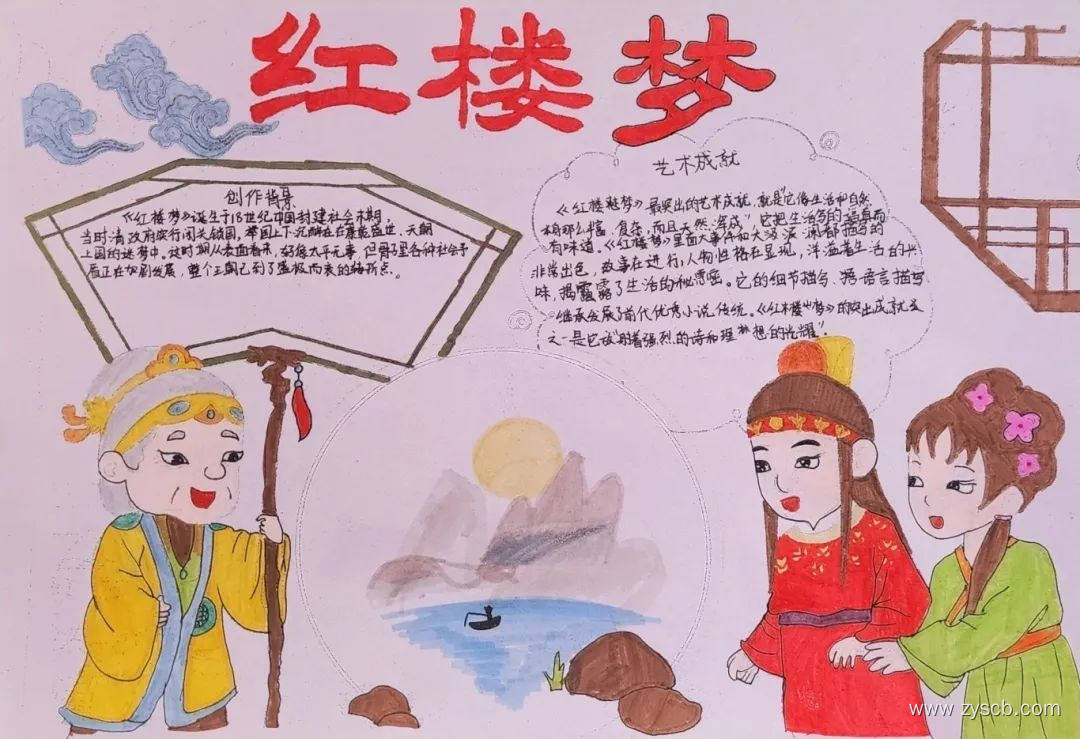 红楼梦
创作背景
《红楼梦》诞生于18世纪中国封建社会末期，
当时清政府实行闭关锁国，举国上下沉醉在康乾盛世、天朝
上国的迷梦中。这时期从表面看来，好像太平无事，但骨里各种社会矛
盾正在加剧发展，整个王朝已到了盛极而衰的转折点。
艺术成就
《红楼梦》最突出的艺术成就，就是"它像生活和自然
本身那么丰富、复杂，而且天然浑成"。它把生活写的
有味道。《红楼梦》里面大事件和大
非常出色，故事在进行，人物性格在显现，洋溢着生活的兴
味，揭露了生活的秘密。它的细节描写、语言描写
继承发展了前代优秀小说传统。《红楼梦》的突出成就
之一是它"着强烈的诗和理想的光耀"
www.zyscb.com